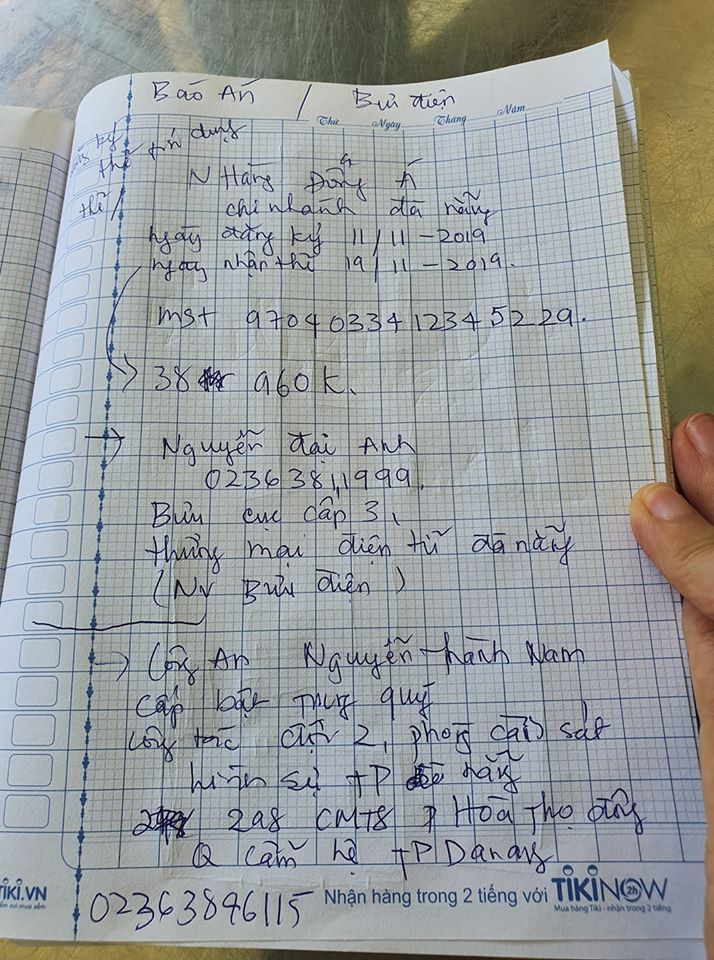 Báo Án / Bưu điện
Thứ Ngày Tháng Năm
đăng ký thẻ tín dụng
thẻ/
N Hàng Đông Á
chi nhánh đà nẵng
ngày đăng ký 11/11-2019
ngày nhận thẻ 19/11-2019.
mst 9704033412345229.
38 960K.
Nguyễn đại Anh
02363811999.
Bưu cục cấp 3,
thương mại điện tử đà nẵng
(NV Bưu điện)
→ Công An Nguyễn thành Nam
cấp bậc trung quý
công tác đội 2, phòng cảnh sát
hình sự TP nẵng
298 CMT8 P Hoà Thọ đông
Q cẩm lệ TP Danang
02363846115
TIKI.VN
Nhận hàng trong 2 tiếng với TIKINOW 2h
Mua hàng Tiki - nhận trong 2 tiếng